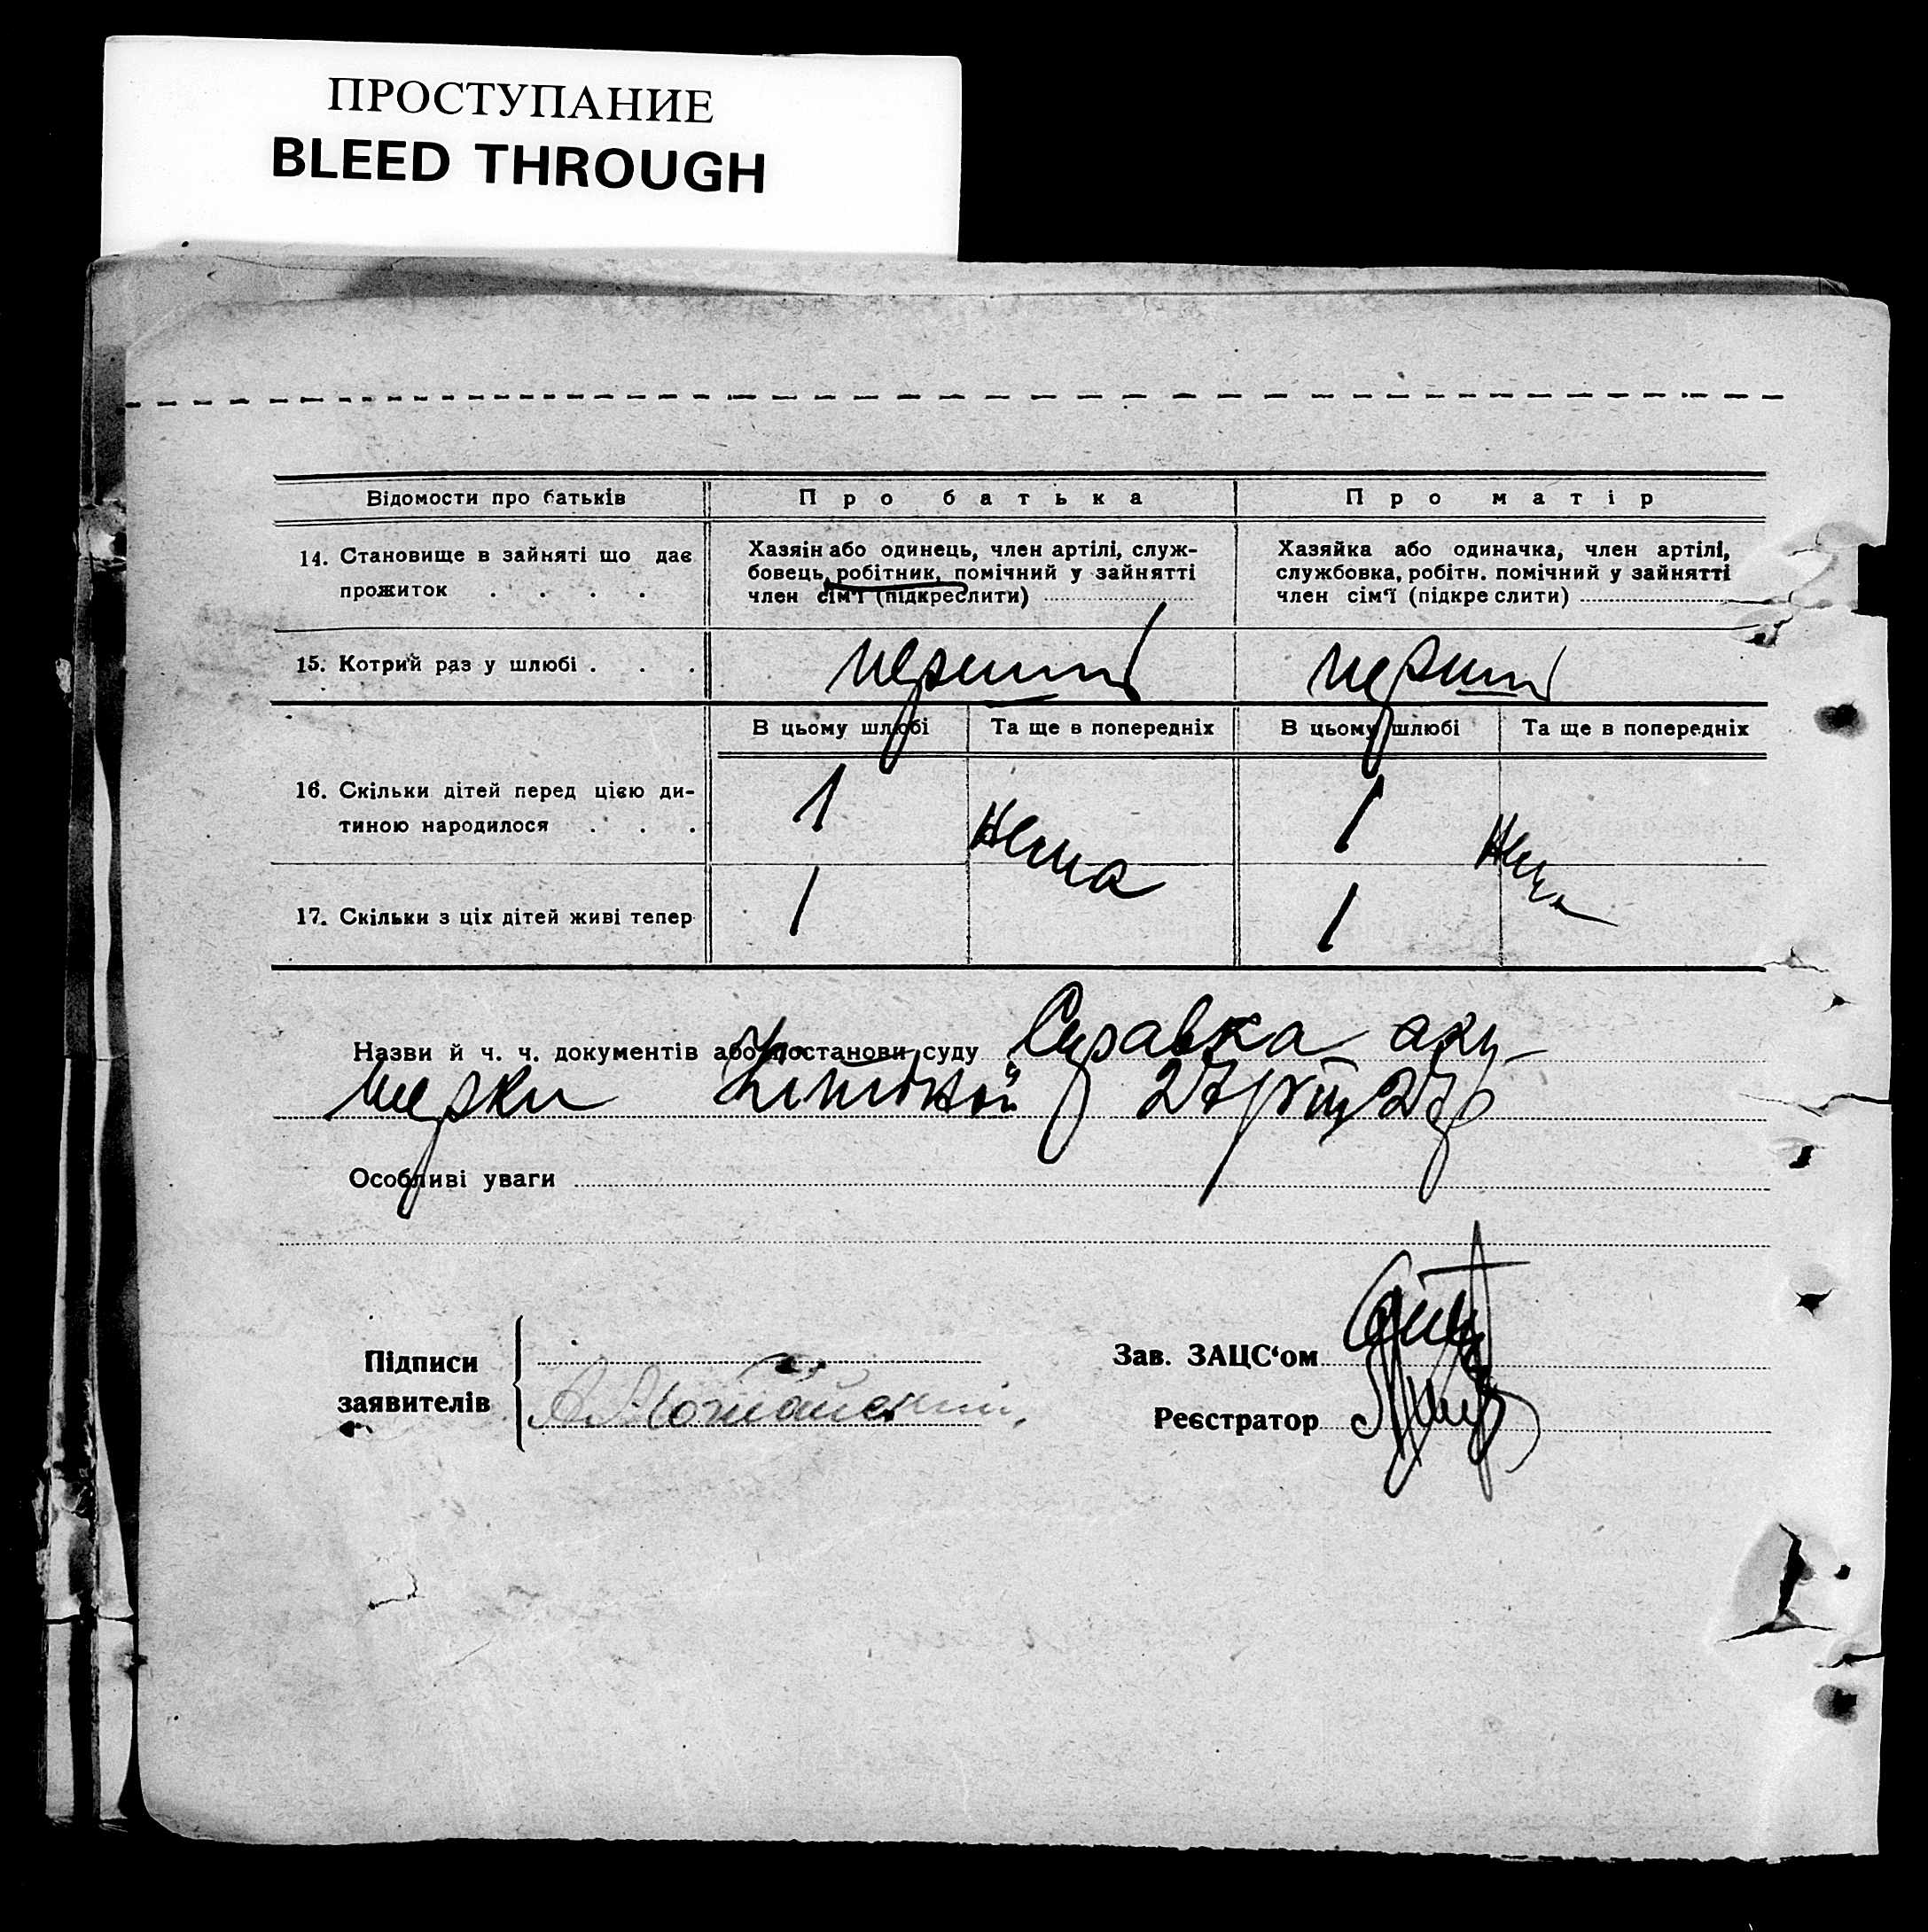 ПРОСТУПАНИЕ
BLEED THROUGH
Відомости про батьків
Про батька
Про матір
14. Становище в зайняті що дає
прожиток . . . .
Хазяін або одинець, член артілі, служ-
бовець, робітник, помічний у зайнятті
член сім'ї (підкреслити)
Хазяйка або одиначка, член артілі,
службовка, робітн. помічний у зайнятті
член сім'ї (підкреслити)
15. Котрий раз у шлюбі . . .
перший
перший
В цьому шлюбі
Та ще в попередніх
В цьому шлюбі
Та ще в попередніх
16. Скільки дітей перед цією ди-
тиною народилося . . .
1
нема
1
нема
17. Скільки з ціх дітей живі тепер
1
1
Назви й ч. ч. документів або постанови суду Справка аку-
шерки 27/VIII 27р
Особливі уваги
Підписи
заявителів
Зав. ЗАЦС'ом
Реєстратор